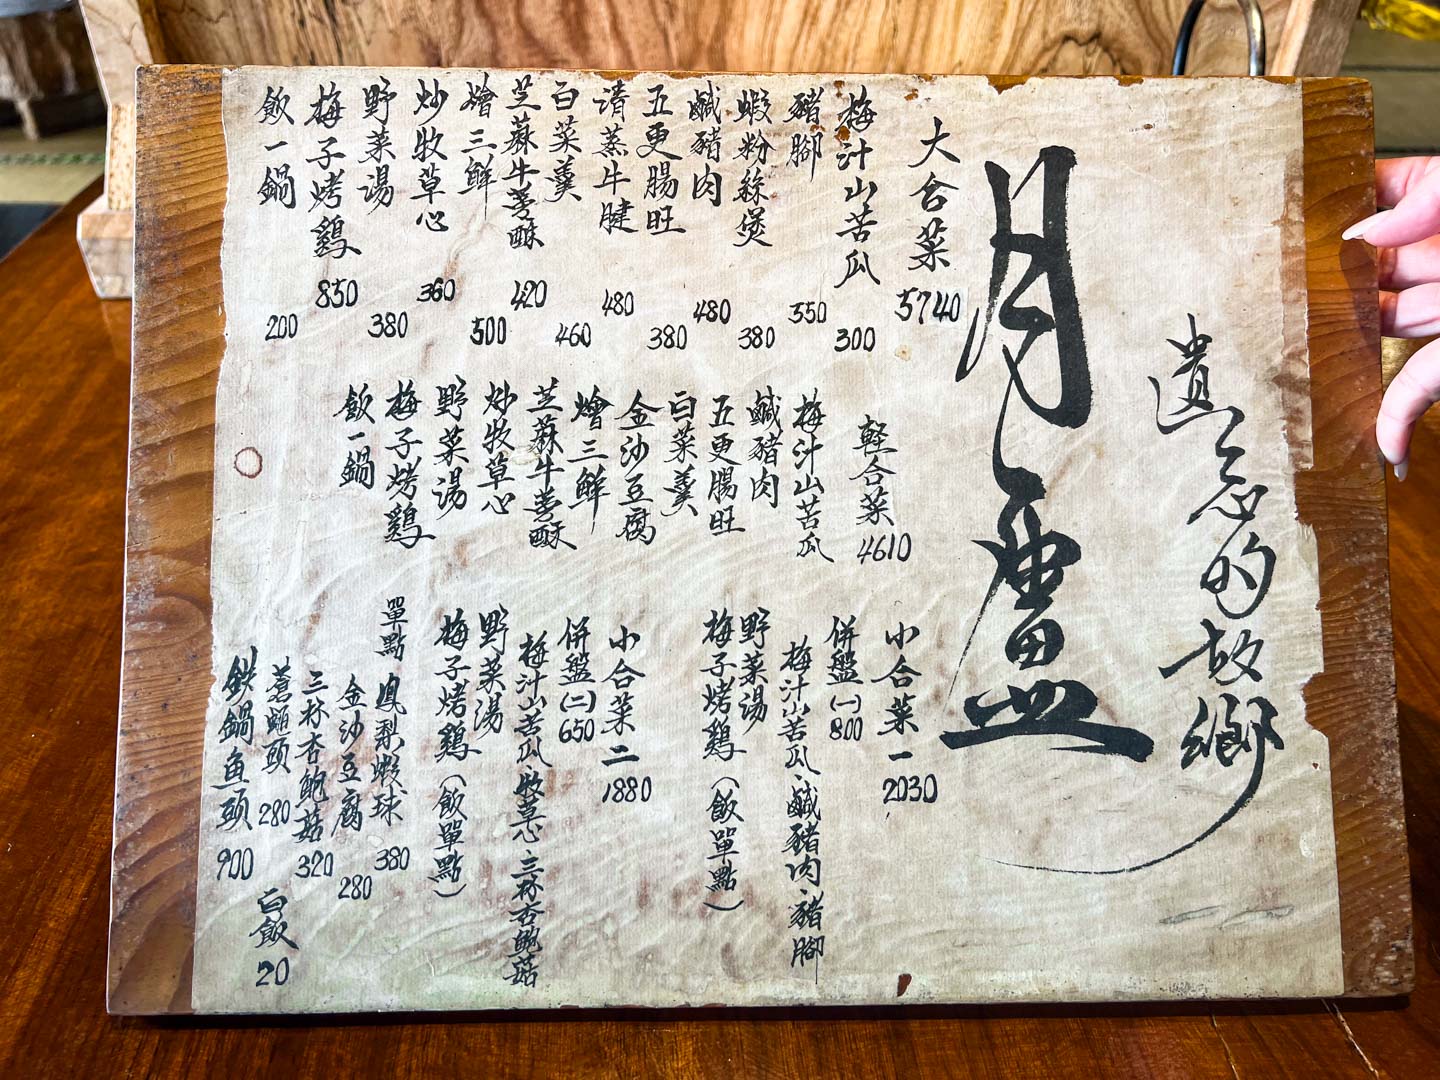 遺忘的故鄉
月廬
大合菜 5740
梅汁山苦瓜 300
豬腳 350
蝦粉絲煲 380
鹹豬肉 480
五更腸旺 380
清蒸牛腱 480
白菜羹 460
芝蔴牛蒡酥 420
燴三鮮 500
炒牧草心 360
野菜湯 380
梅子烤鷄 850
飯一鍋 200
軽合菜 4610
梅汁山苦瓜
鹹豬肉
五更腸旺
白菜羹
金沙豆腐
燴三鮮
芝蔴牛蒡酥
炒牧草心
野菜湯
梅子烤鷄
飯一鍋
小合菜一 2030
併盤(一) 800
梅汁山苦瓜、鹹豬肉、豬腳
野菜湯
梅子烤鷄(飯單點)
小合菜二 1880
併盤(二) 650
梅汁山苦瓜、牧草心、三杯杏鮑菇
野菜湯
梅子烤鷄(飯單點)
單點
鳳梨蝦球 380
金沙豆腐 280
三杯杏鮑菇 320
蒼蠅頭 280
鉄鍋魚頭 900
白飯 20